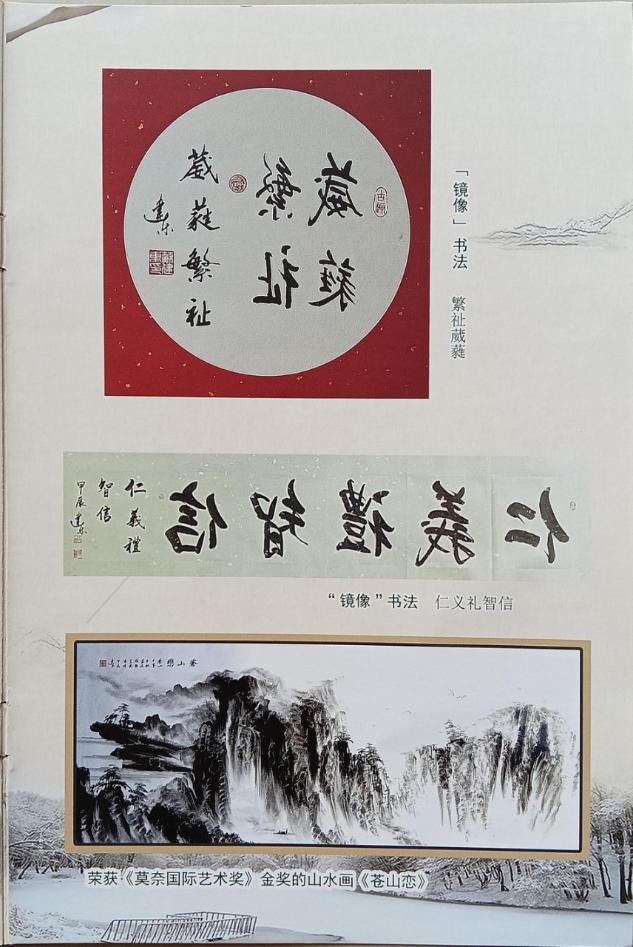 葳蕤
繁祉
葳蕤繁祉
建东
「镜像」书法 繁祉葳蕤
仁義禮智信
仁義禮
智信
甲辰 建东
“镜像”书法 仁义礼智信
苍山恋
荣获《莫奈国际艺术奖》金奖的山水画《苍山恋》